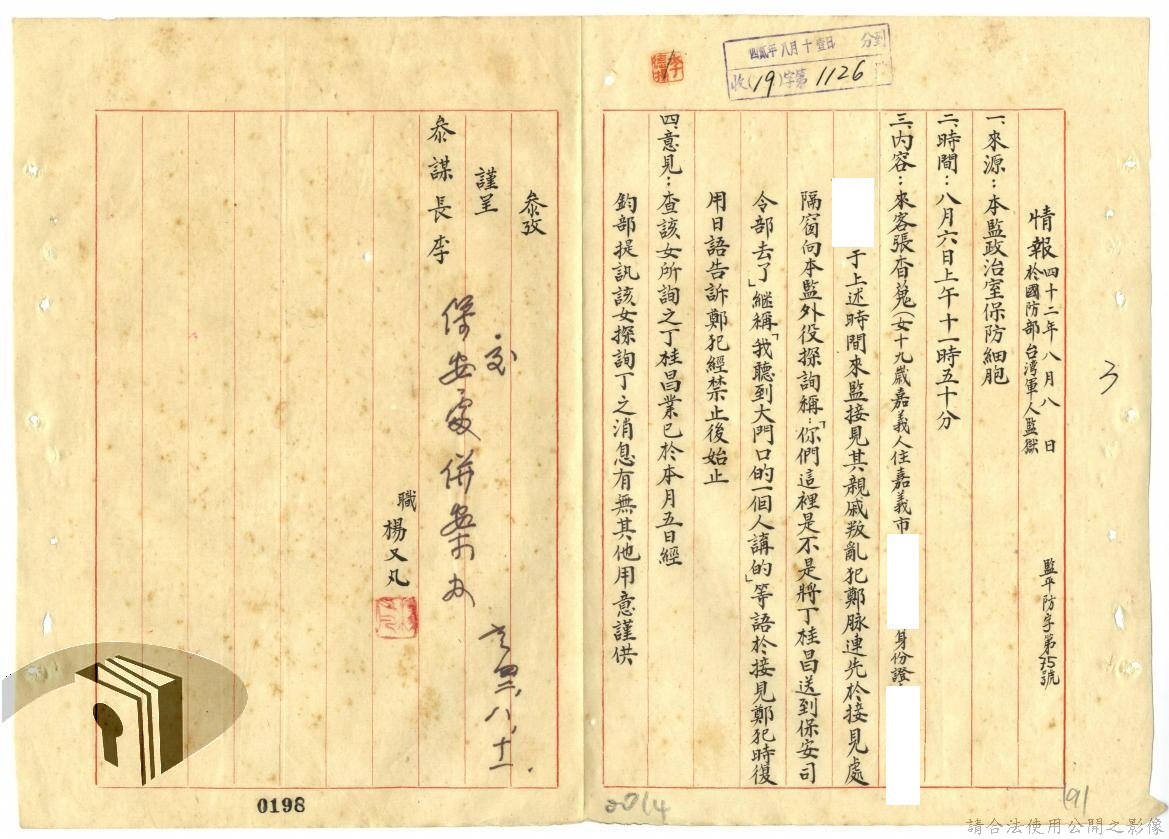 四貳年八月十壹日 分到
收(19)字第1126
3
情報 四十二年八月八日
於國防部台湾軍人監獄
監平防字第75號
一、來源：本監政治室保防細胞
二、時間：八月六日上午十一時五十分
三、內容：來客張杳蒐(女十九歲嘉義人住嘉義市
身份證
于上述時間來監接見其親戚叛亂犯鄭脉連先於接見處
隔窗向本監外役探詢稱：「你們這裡是不是將丁桂昌送到保安司
令部去了」繼稱「我聽到大門口的一個人講的」等語於接見鄭犯時復
用日語告訴鄭犯經禁止後始止
四、意見：查該女所詢之丁桂昌業已於本月五日經
鈞部提訊該女探詢丁之消息有無其他用意謹供
參攷
謹呈
參謀長李
交
保安處併案办
四二、八、十一
職 楊又凡
0198
2014
91
請合法使用公開之影像